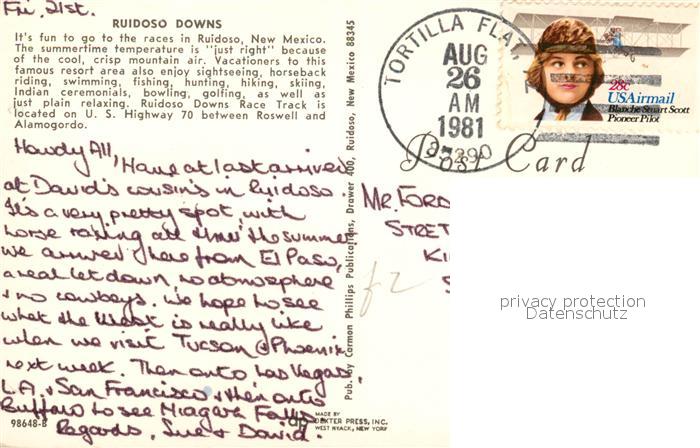 Fri, 21st.
RUIDOSO DOWNS
It's fun to go to the races in Ruidoso, New Mexico.
The summertime temperature is "just right" because
of the cool, crisp mountain air. Vacationers to this
famous resort area also enjoy sightseeing, horseback
riding, swimming, fishing, hunting, hiking, skiing,
Indian ceremonials, bowling, golfing, as well as
just plain relaxing. Ruidoso Downs Race Track is
located on U. S. Highway 70 between Roswell and
Alamogordo.
Howdy All,
Have at last arrived
at David's cousin's in Ruidoso.
It's a very pretty spot, with
horse racing all thro' the summer
we arrived here from El Paso,
a real let down, no atmosphere
& no cowboys. We hope to see
what the West is really like
when we visit Tucson & Phoenix
next week. Then onto Las Vegas,
L.A. & San Francisco & then onto
Buffalo to see Niagara Falls.
Regards, Sue & David.
98648-B
MADE BY
DEXTER PRESS, INC.
WEST NYACK, NEW YORK
Pub. by Carmon Phillips Publications, Drawer 400, Ruidoso, New Mexico 88345
TORTILLA FLAT,
AUG
26
AM
1981
85290
28c
USAirmail
Blanche Stuart Scott
Pioneer Pilot
Post Card
MR. FORD
STRET
KI
S
f2
privacy protection
Datenschutz